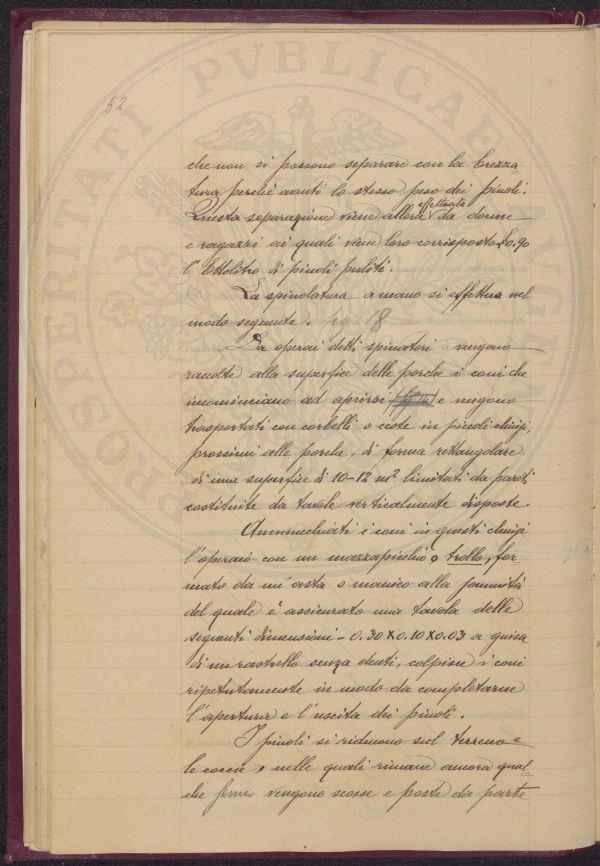 PROSPERITATI PVBLICAE AVGENDAE
52
che non si possono separare con la brezza-
tura perchè aventi lo stesso peso dei pinoli.
effettuata
Questa separazione viene allora da donne
e ragazzi ai quali vien loro corrisposto £0.90
l'Ettolitro di pinoli puliti.
La spinolatura a mano si effettua nel
modo seguente. fig 18
Da operai detti spinatori vengono
raccolte alla superfice delle porche i coni che
incominciano ad aprirsi e vengono
trasportati con corbelli o ceste in piccoli chiusi,
prossimi alle porche, di forma rettangolare
di una superfice di 10-12 m² limitati da pareti
costituite da tavole verticalmente disposte.
Ammucchiati i coni in questi chiusi
l'operaio con un mazzapicchio o trollo, for
mato da un'asta o manico alla sommità
del quale è assicurato una tavola delle
seguenti dimensioni - 0.30 X 0.10 X 0.03 a guisa
di un rastrello senza denti, colpisce i coni
ripetutamente in modo da completarne
l'apertura e l'uscita dei pinoli.
I pinoli si riducono sul terreno e
le coccie, nelle quali rimane ancora qual-
che seme vengono scosse e poste da parte